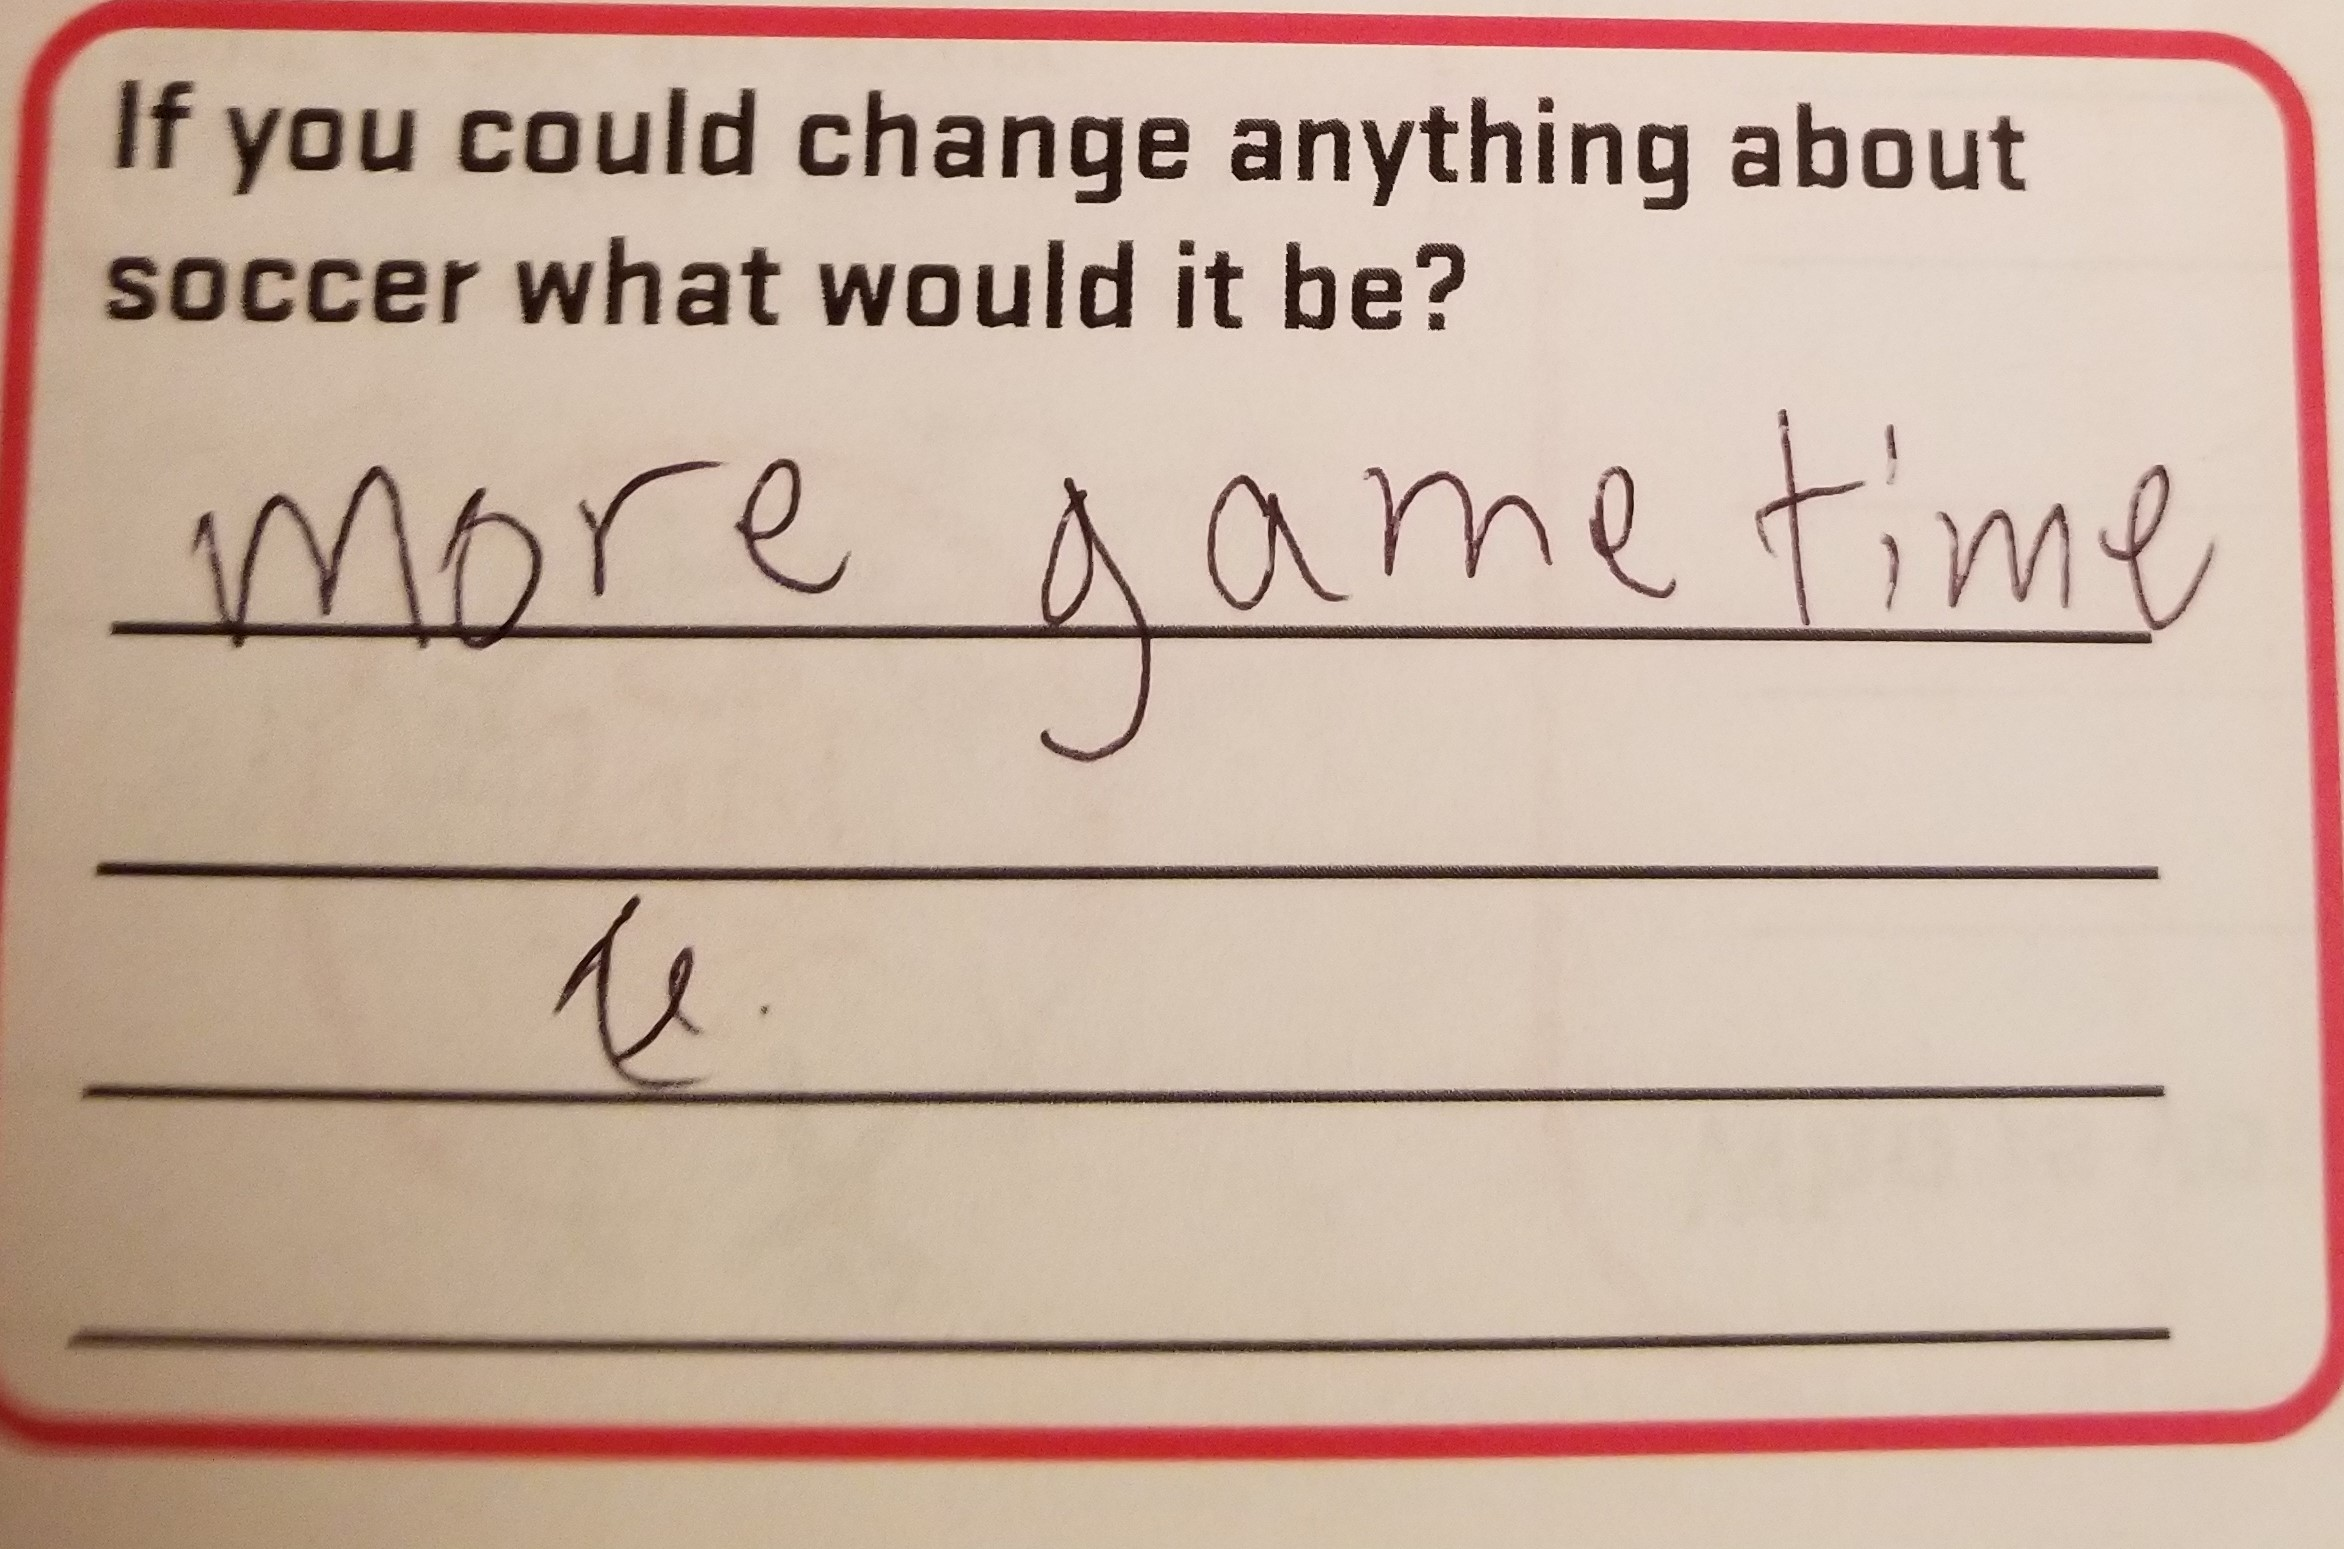 If you could change anything about
soccer what would it be?
more game time